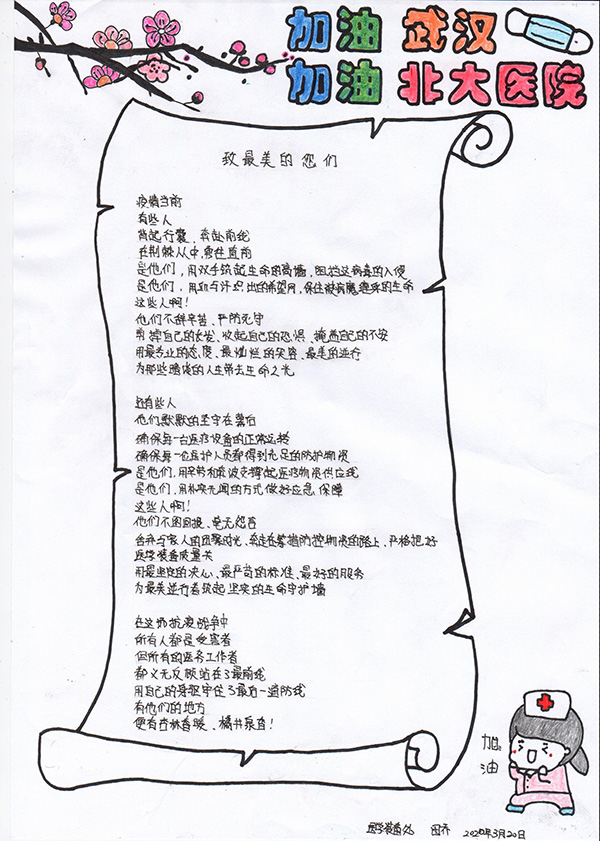 加油 武汉
加油 北大医院
致最美的您们
疫情当前
有些人
背起行囊，奔赴前线
在荆棘丛中，勇往直前
是他们，用双手筑起生命的高墙，阻挡这病毒的入侵
是他们，用血与汗织出的希望网，保住被病魔缠绕的生命
这些人啊！
他们不辞辛苦、严防死守
剪掉自己的长发、收起自己的恐惧、掩盖自己的不安
用最专业的态度、最灿烂的笑容、最美的逆行
为那些暗淡的人生带去生命之光
还有些人
他们默默的坚守在幕后
确保每一台医疗设备的正常运转
确保每一位医护人员都得到充足的防护物资
是他们，用辛劳和奔波支撑起医疗物资供应线
是他们，用朴实无闻的方式做好应急保障
这些人啊！
他们不图回报、毫无怨言
舍弃与家人的团聚时光、奔走在筹措防控物资的路上，严格把好
医学装备质量关
用最坚定的决心、最严苛的标准、最好的服务
为最美逆行者筑起坚实的生命守护墙
在这场抗疫战争中
所有人都是受害者
但所有的医务工作者
都义无反顾站在了最前线
用自己的身躯守住了最后一道防线
有他们的地方
便有杏林春暖、橘井泉香！
加油
医学装备处 田乔 2020年3月20日